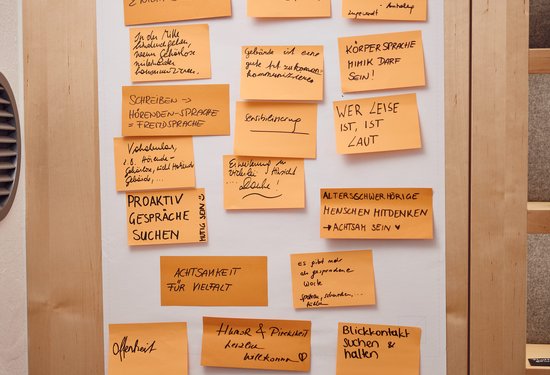 In der Mitte
kommunizieren.
Gebärde ist eine
gute Art zu kommu-
kommunizieren
KÖRPERSPRACHE
MIMIK DARF
SEIN!
SCHREIBEN →
HÖRENDEN-SPRACHE
= FREMDSPRACHE
Sensibilisierung
WER LEISE
IST, IST
LAUT
Vokabular,
z.B. Hörende-
Gebärde, nicht Hörende
Gebärde, ...
Erweiterung in
vielerlei Hinsicht
PROAKTIV
GESPRÄCHE
SUCHEN
MUTIG SEIN
ALTERSSCHWERHÖRIGE
MENSCHEN MITDENKEN
→ ACHTSAM SEIN ♥
ACHTSAMKEIT
FÜR VIELFALT
es gibt mehr
als gesprochene
Worte
Offenheit
Humor & Direktheit
herzlich
willkommen ♡
Blickkontakt
suchen &
halten